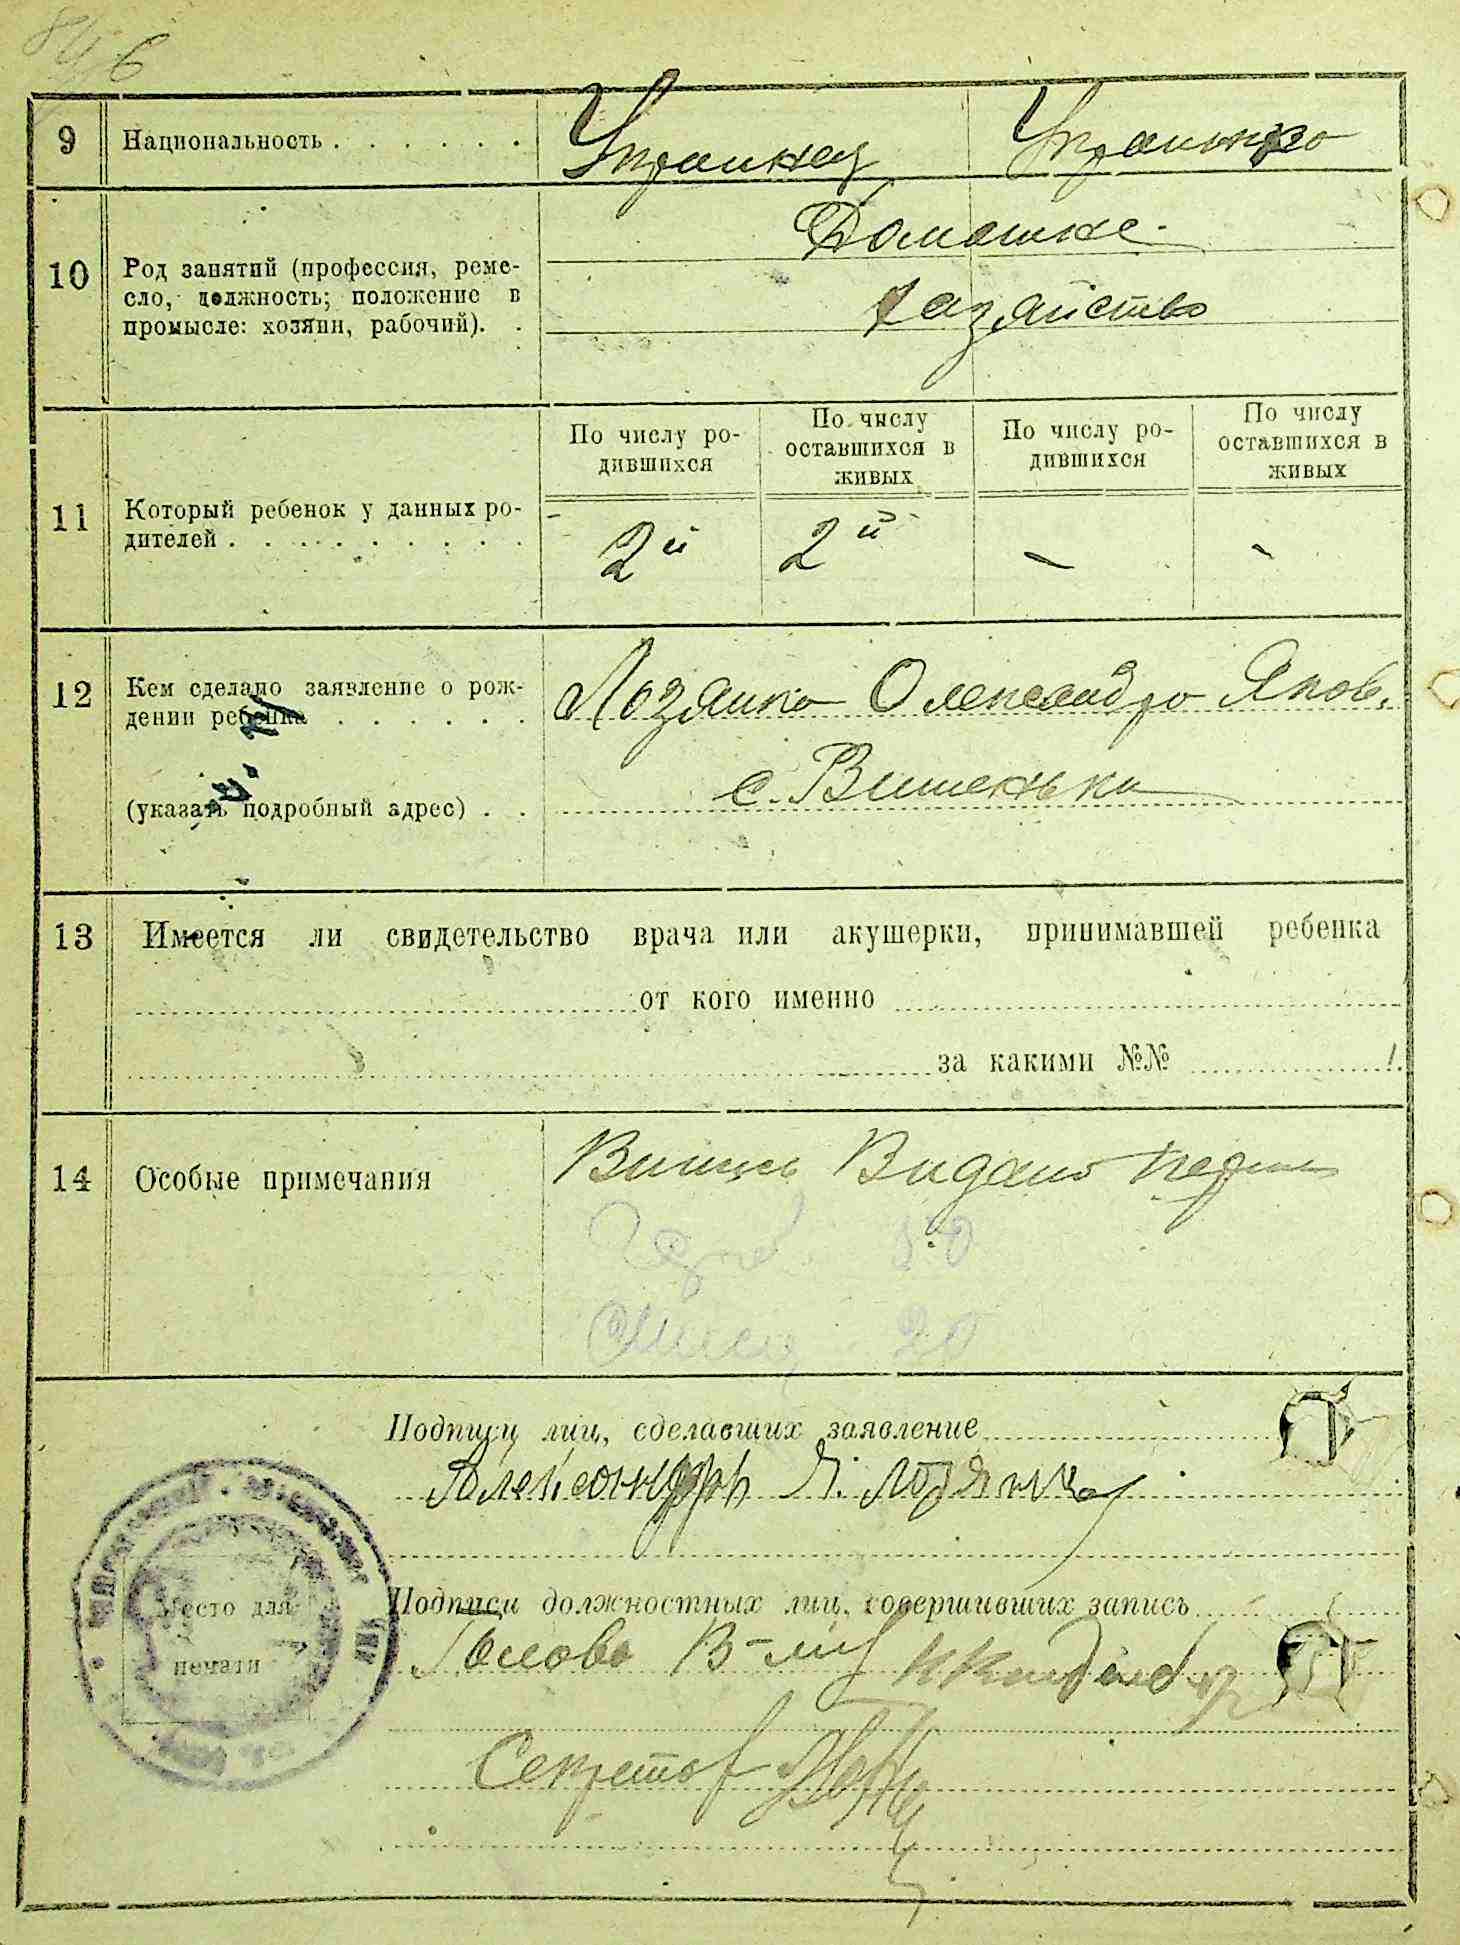 6
9 Национальность . . . . . . Украинец Украинка
10 Род занятий (профессия, реме-
сло, должность; положение в
промысле: хозяин, рабочий). .
Домашне
хазяйство
11 Который ребенок у данных ро-
дителей . . . . . . . . .
По числу ро-
дившихся
По числу
оставшихся в
живых
По числу ро-
дившихся
По числу
оставшихся в
живых
2й 2й - -
12 Кем сделано заявление о рож-
дении ребенка . . . . . .
Лозянко Олександро Яков.
(указать подробный адрес) . .
с. Вишеньки
13 Имеется ли свидетельство врача или акушерки, принимавшей ребенка
от кого именно
за какими №№
14 Особые примечания
Видано
Подписи лиц, сделавших заявление
Александръ Я. Лозянко
Место для
печати
Подписи должностных лиц, совершивших запись
Голова
Секретар